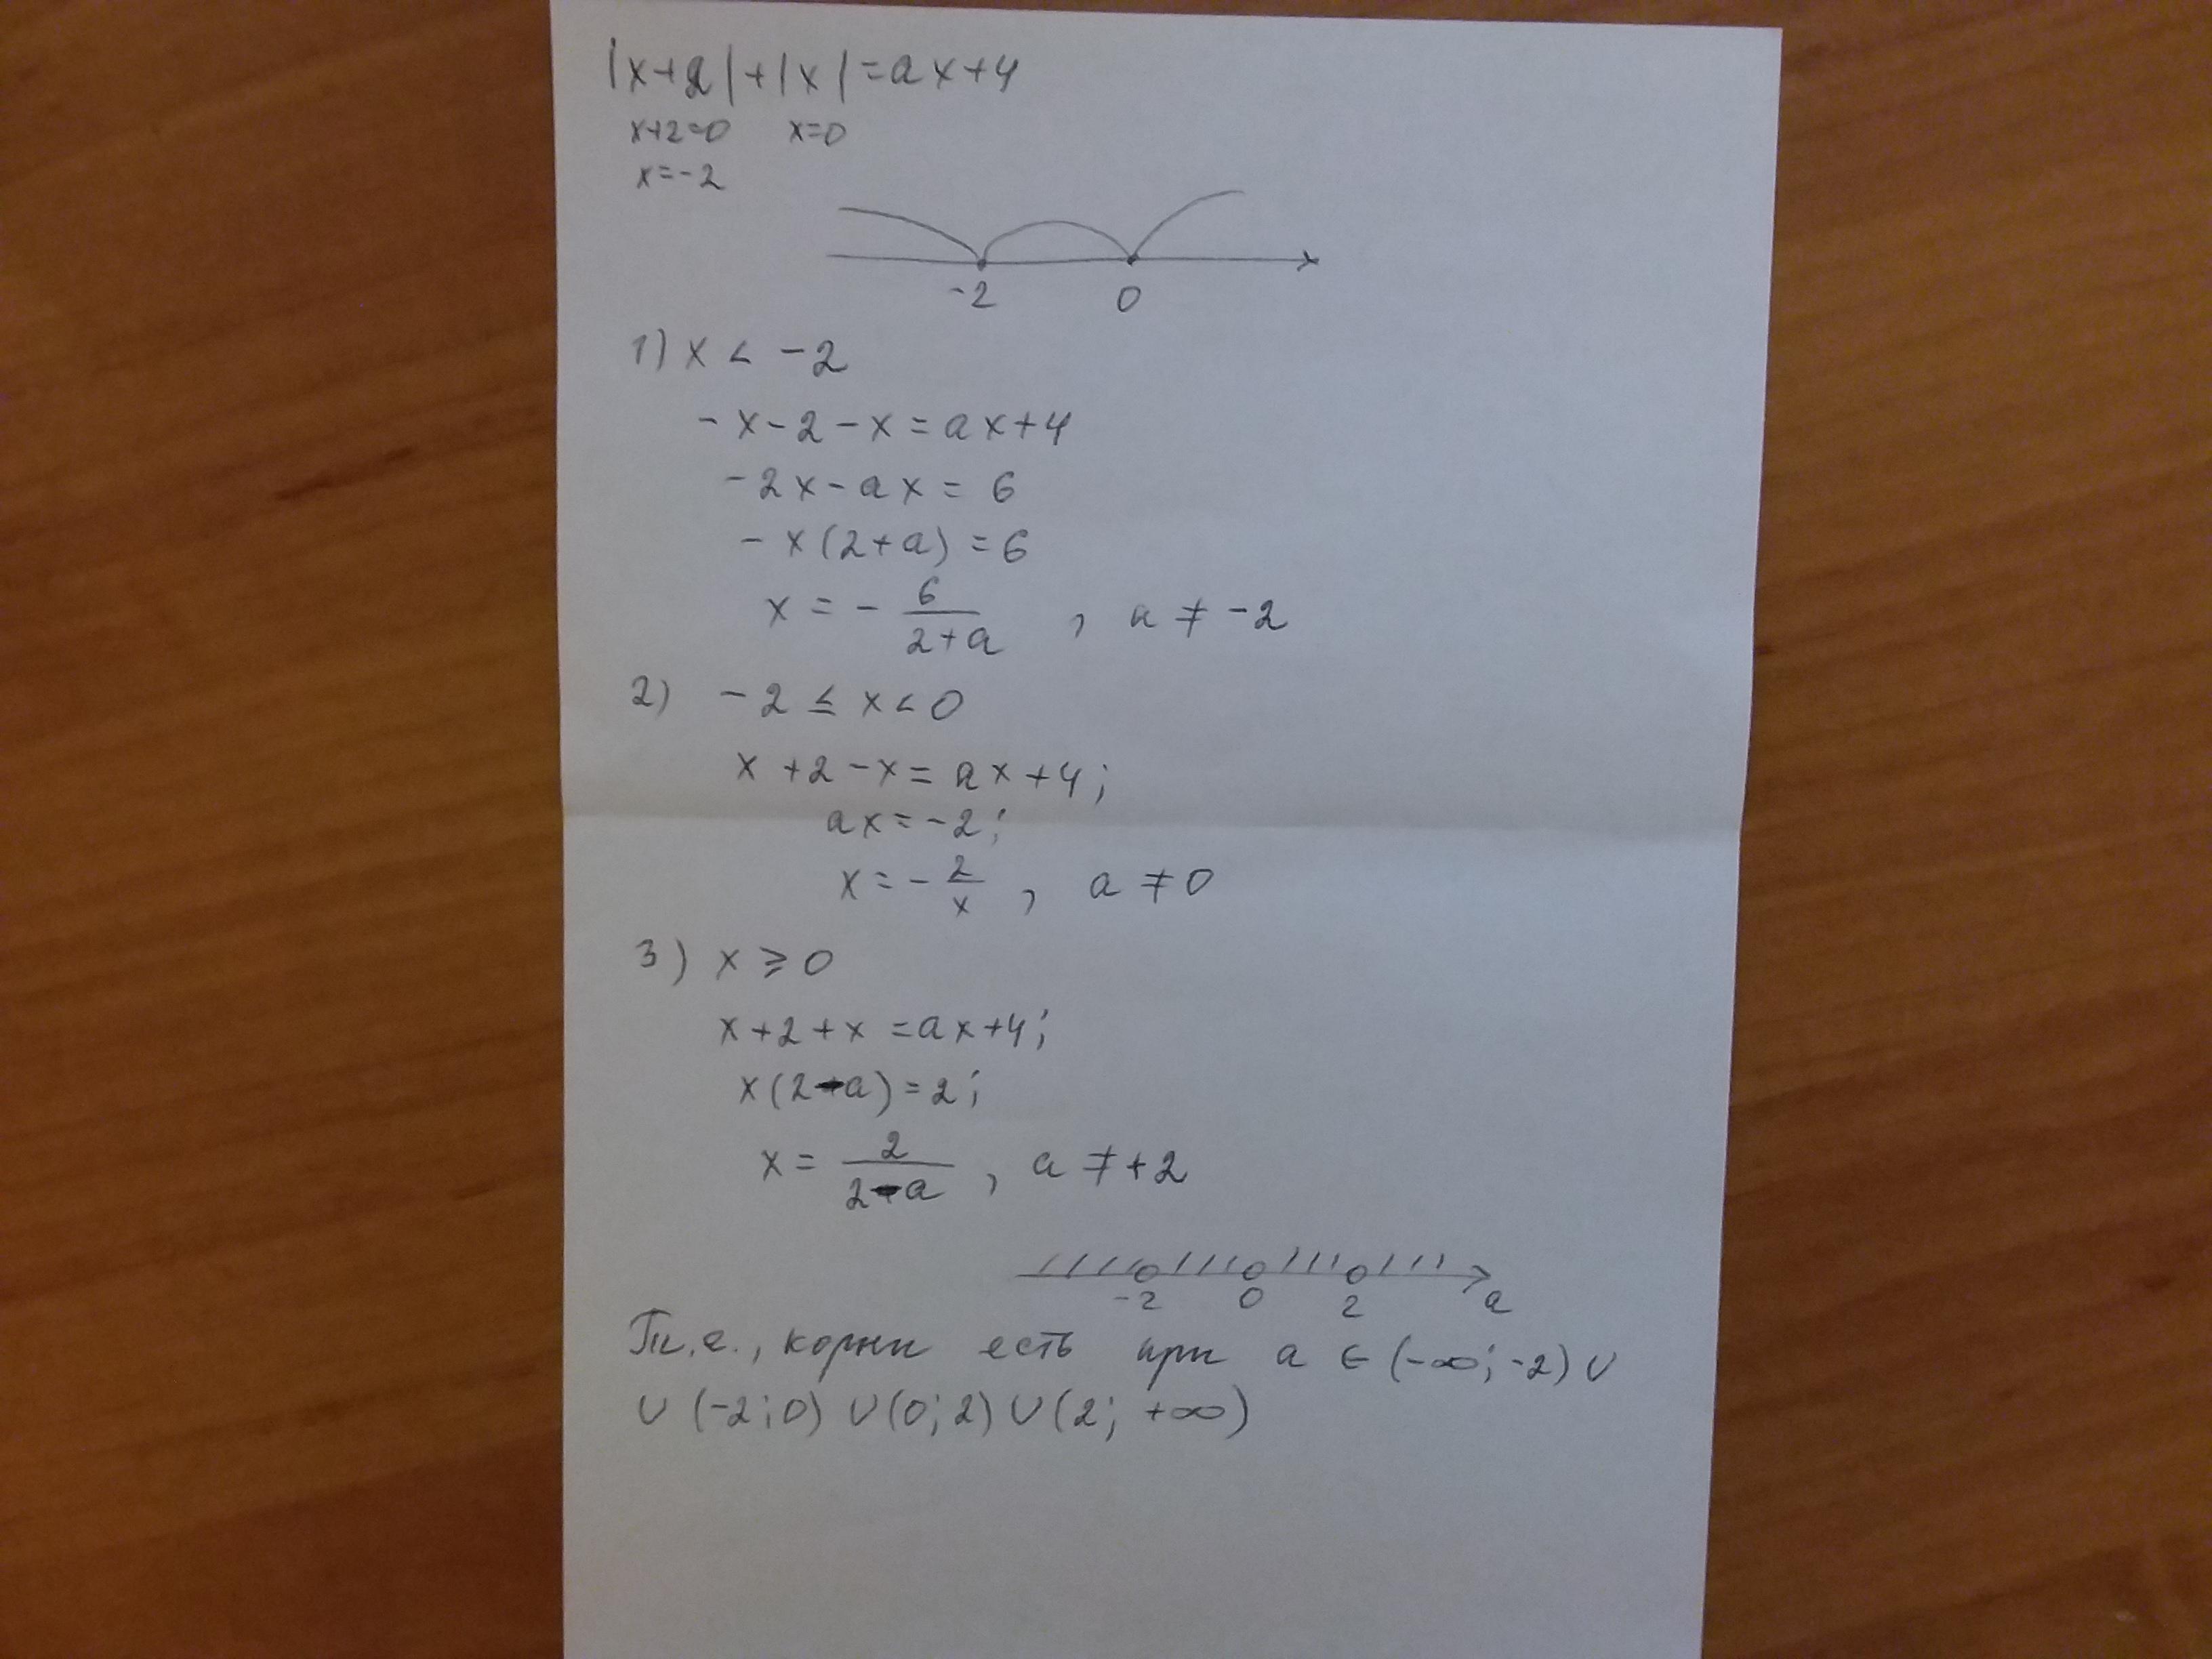 |x+2|+|x|=ax+4
x+2=0 x=0
x=-2
-2 0
1) x < -2
-x-2-x=ax+4
-2x-ax=6
-x(2+a)=6
x=-6/(2+a), a≠-2
2) -2≤x<0
x+2-x=ax+4;
ax=-2;
x=-2/x, a≠0
3) x≥0
x+2+x=ax+4;
x(2-a)=2;
x=2/(2-a), a≠+2
-2 0 2 a
Т.е., корни есть при a∈(-∞;-2)∪
∪(-2;0)∪(0;2)∪(2;+∞)